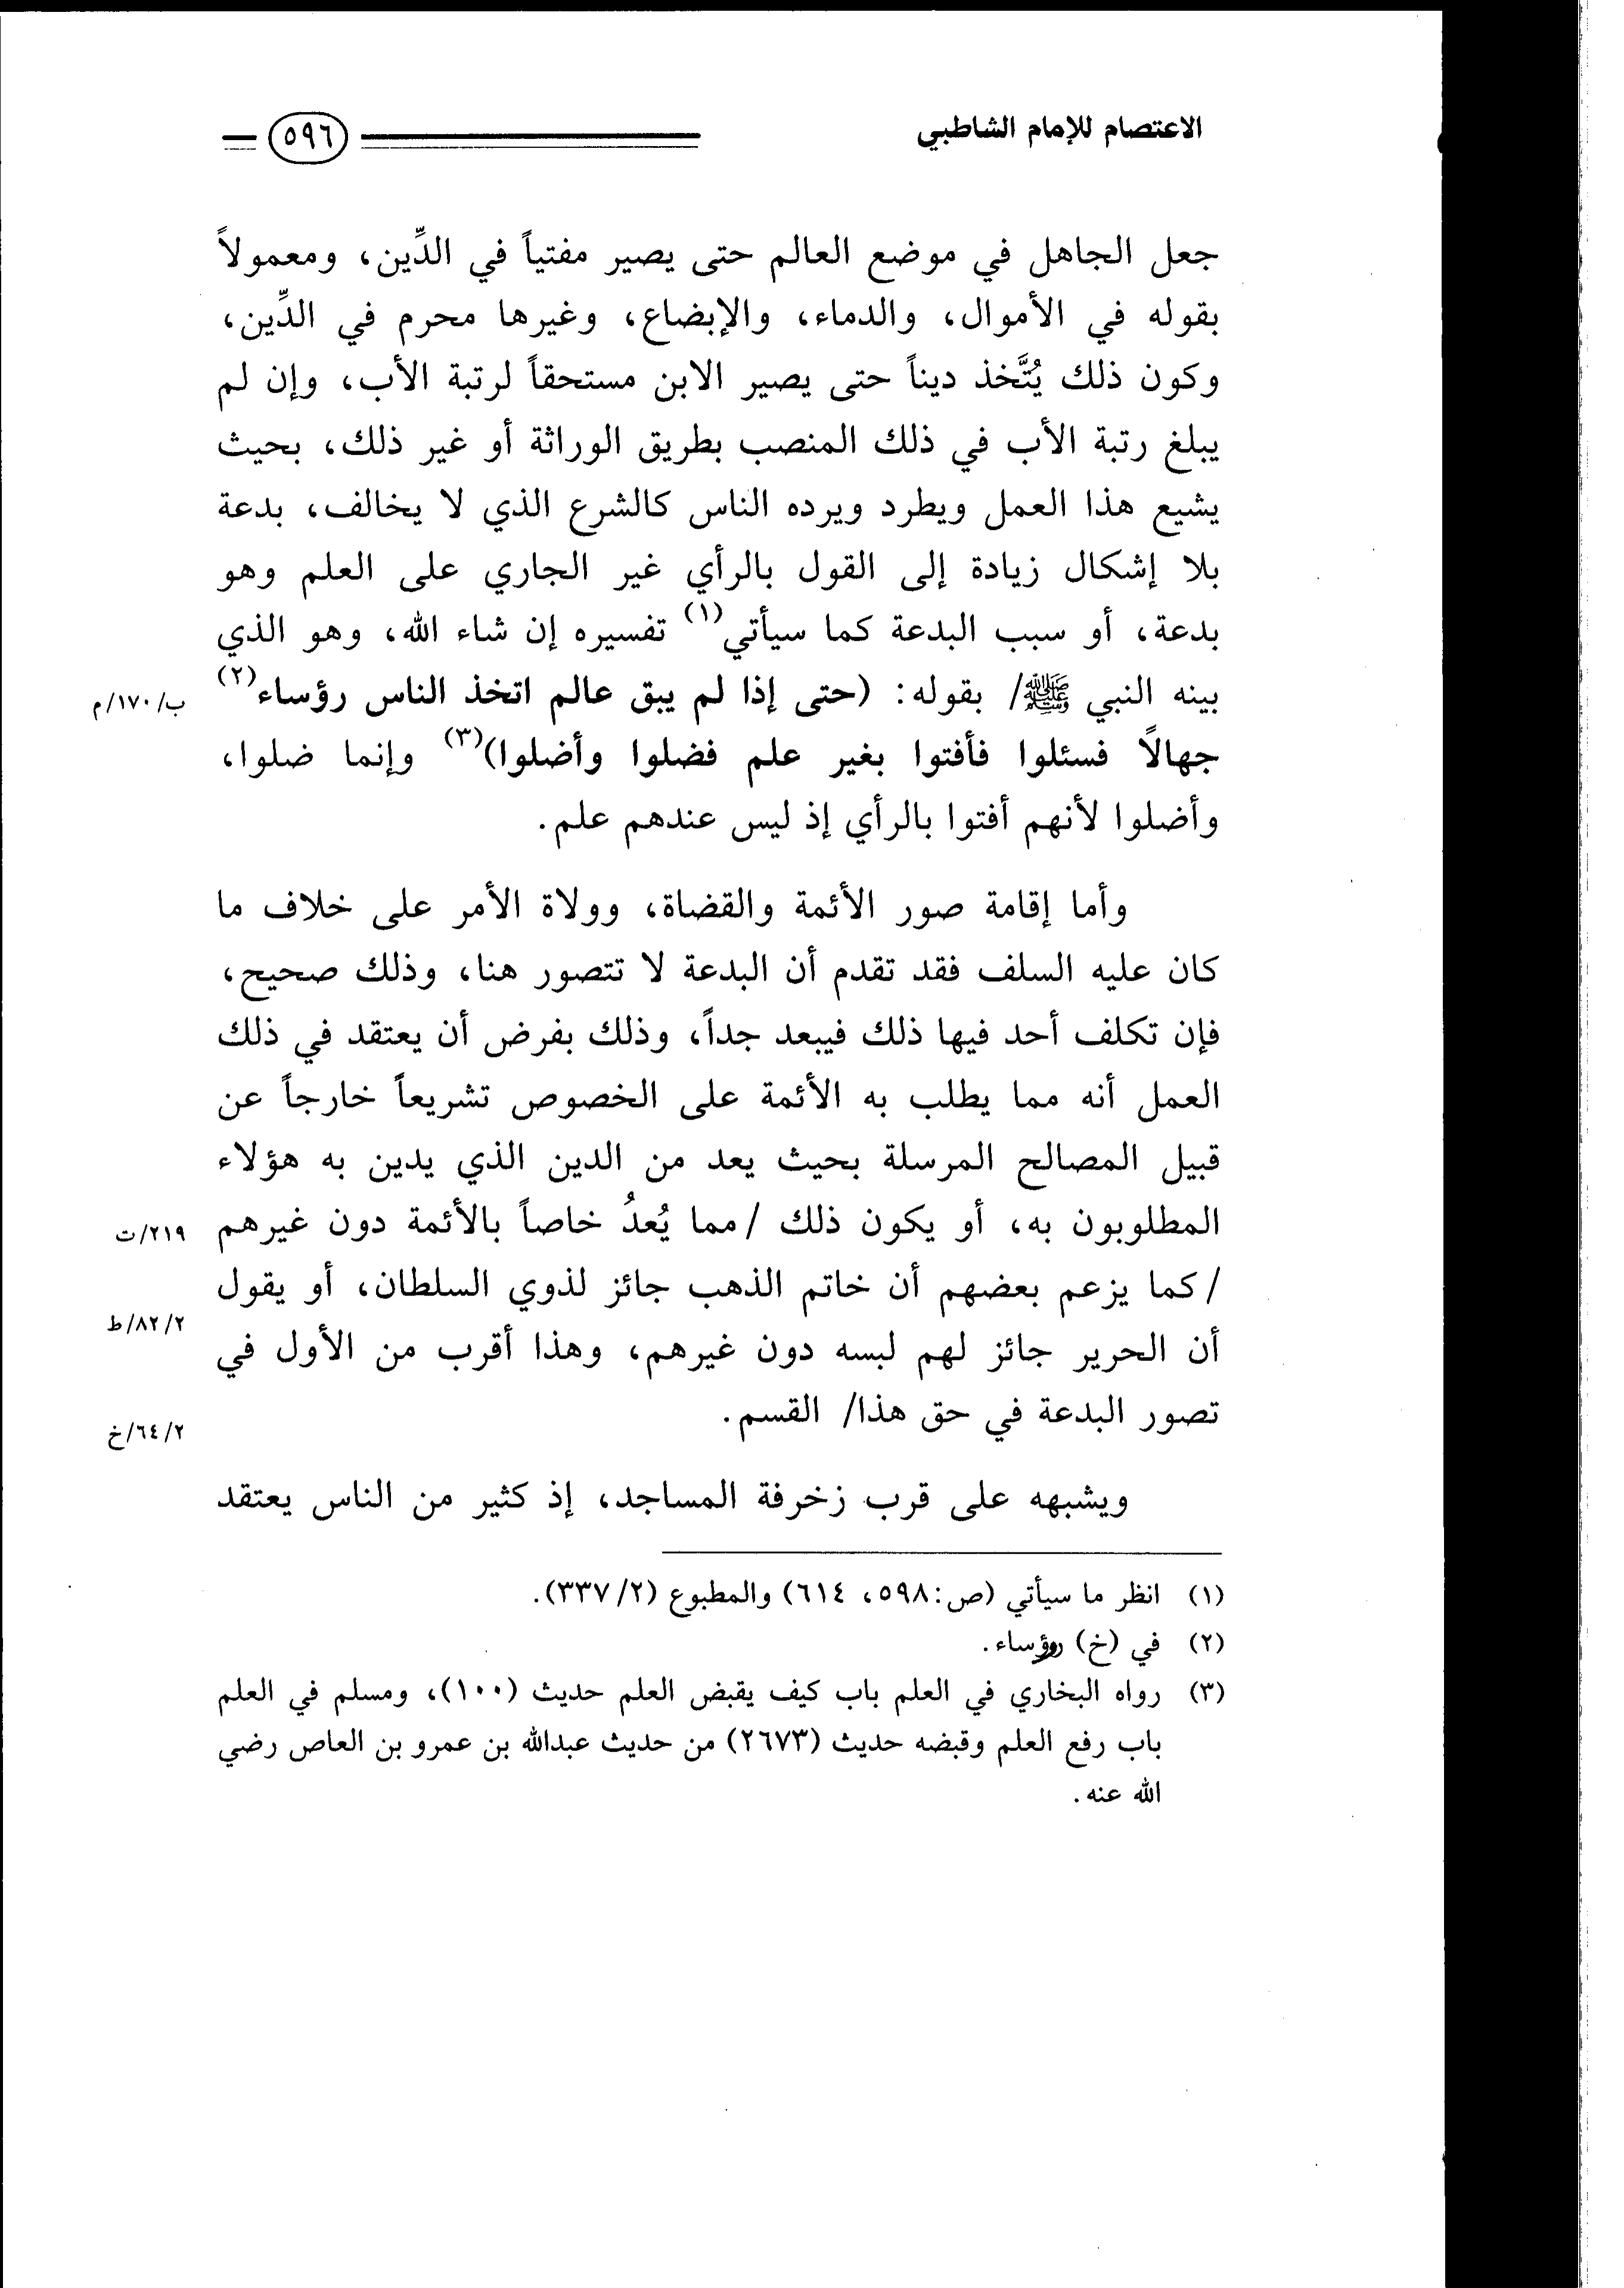 الاعتصام للإمام الشاطبي
٥٩٦
جعل الجاهل في موضع العالم حتى يصير مفتياً في الدِّين، ومعمولاً
بقوله في الأموال، والدماء، والإبضاع، وغيرها محرم في الدِّين،
وكون ذلك يُتَّخذ ديناً حتى يصير الابن مستحقاً لرتبة الأب، وإن لم
يبلغ رتبة الأب في ذلك المنصب بطريق الوراثة أو غير ذلك، بحيث
يشيع هذا العمل ويطرد ويرده الناس كالشرع الذي لا يخالف، بدعة
بلا إشكال زيادة إلى القول بالرأي غير الجاري على العلم وهو
بدعة، أو سبب البدعة كما سيأتي(١) تفسيره إن شاء الله، وهو الذي
بينه النبي ﷺ/ بقوله: (حتى إذا لم يبق عالم اتخذ الناس رؤساء(٢)
ب/١٧٠/م
جهالًا فسئلوا فأفتوا بغير علم فضلوا وأضلوا)(٣) وإنما ضلوا،
وأضلوا لأنهم أفتوا بالرأي إذ ليس عندهم علم.
وأما إقامة صور الأئمة والقضاة، وولاة الأمر على خلاف ما
كان عليه السلف فقد تقدم أن البدعة لا تتصور هنا، وذلك صحيح،
فإن تكلف أحد فيها ذلك فيبعد جداً، وذلك بفرض أن يعتقد في ذلك
العمل أنه مما يطلب به الأئمة على الخصوص تشريعاً خارجاً عن
قبيل المصالح المرسلة بحيث يعد من الدين الذي يدين به هؤلاء
المطلوبون به، أو يكون ذلك /مما يُعدُ خاصاً بالأئمة دون غيرهم
٢١٩/ت
/كما يزعم بعضهم أن خاتم الذهب جائز لذوي السلطان، أو يقول
٨٢/٢/ط
أن الحرير جائز لهم لبسه دون غيرهم، وهذا أقرب من الأول في
تصور البدعة في حق هذا/ القسم.
٦٤/٢/خ
ويشبهه على قرب زخرفة المساجد، إذ كثير من الناس يعتقد
(١) انظر ما سيأتي (ص:٥٩٨، ٦١٤) والمطبوع (٣٣٧/٢).
(٢) في (خ) روؤساء.
(٣) رواه البخاري في العلم باب كيف يقبض العلم حديث (١٠٠)، ومسلم في العلم
باب رفع العلم وقبضه حديث (٢٦٧٣) من حديث عبدالله بن عمرو بن العاص رضي
الله عنه.